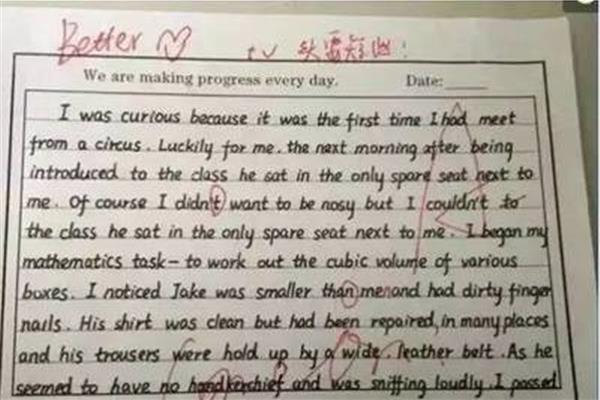 Better
We are making progress every day. Date:
I was curious because it was the first time I had meet
from a circus. Luckily for me. the next morning after being
introduced to the class he sat in the only spare seat next to
me. Of course I didn't want to be nosy but I couldn't to
the class he sat in the only spare seat next to me. I began my
mathematics task - to work out the cubic volume of various
boxes. I noticed Jake was smaller than men and had dirty finger
nails. His shirt was clean but had been repaired, in many places
and his trousers were hold up by a wide. leather belt. As he
seemed to have no handkerchief and was sniffing loudly. I passed